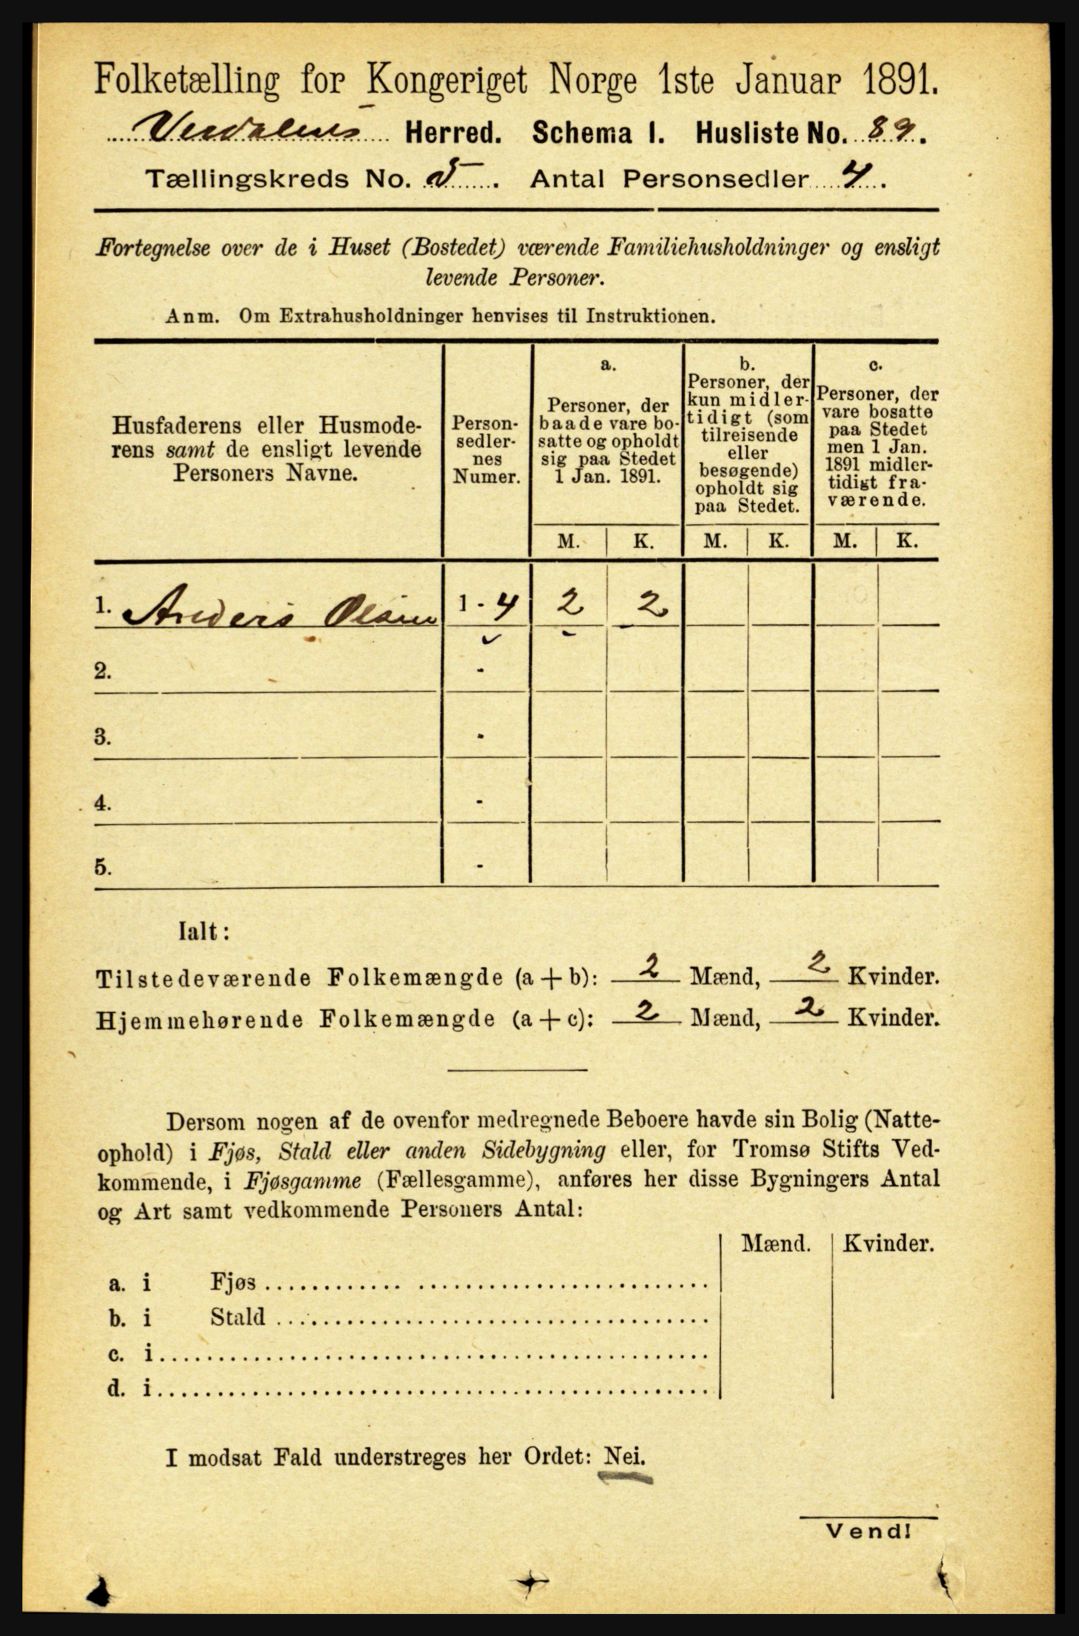 Folketælling for Kongeriget Norge 1ste Januar 1891.
Verdalens Herred. Schema I. Husliste No. 89.
Tællingskreds No. 5. Antal Personsedler 4.
Fortegnelse over de i Huset (Bostedet) værende Familiehusholdninger og ensligt
levende Personer.
Anm. Om Extrahusholdninger henvises til Instruktionen.
Husfaderens eller Husmode-
rens samt de ensligt levende
Personers Navne.
Person-
sedler-
nes
Numer.
a.
Personer, der
baade vare bo-
satte og opholdt
sig paa Stedet
1 Jan. 1891.
b.
Personer, der
kun midler-
tidigt (som
tilreisende
eller
besøgende)
opholdt sig
paa Stedet.
c.
Personer, der
vare bosatte
paa Stedet
men 1 Jan.
1891 midler-
tidigt fra-
værende.
M. K. M. K. M. K.
1. Anders Olsen 1 - 4 2 2
2. -
3. -
4. -
5. -
Ialt:
Tilstedeværende Folkemængde (a + b): 2 Mænd, 2 Kvinder.
Hjemmehørende Folkemængde (a + c): 2 Mænd, 2 Kvinder.
Dersom nogen af de ovenfor medregnede Beboere havde sin Bolig (Natte-
ophold) i Fjøs, Stald eller anden Sidebygning eller, for Tromsø Stifts Ved-
kommende, i Fjøsgamme (Fællesgamme), anføres her disse Bygningers Antal
og Art samt vedkommende Personers Antal:
Mænd. Kvinder.
a. i Fjøs
b. i Stald
c. i
d. i
I modsat Fald understreges her Ordet: Nei.
Vend!